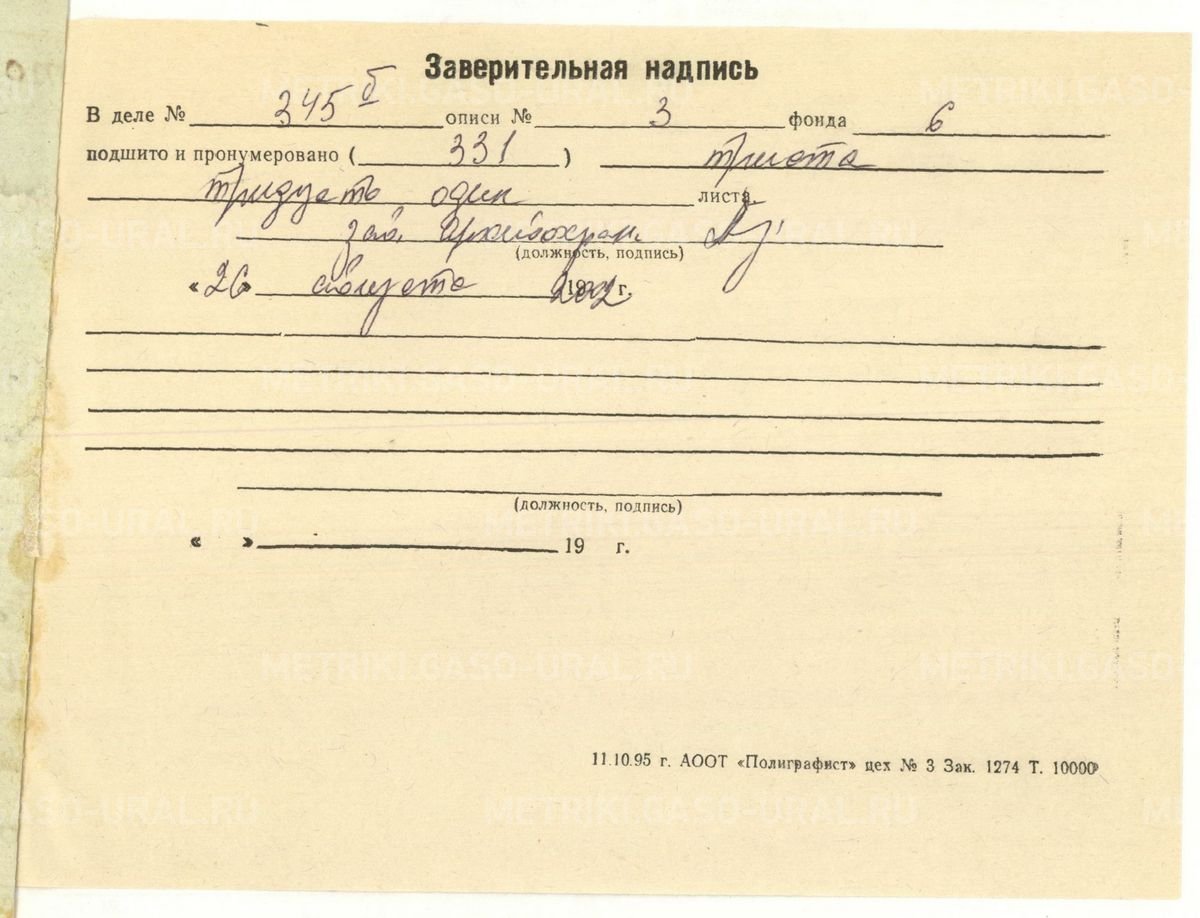 Заверительная надпись
В деле № 345 б описи № 3 фонда 6
подшито и пронумеровано ( 331 ) триста
тридцать один листа.
зав. архивохран.
(должность, подпись)
« 26 » августа 2002 г.
(должность, подпись)
« » 19 г.
11.10.95 г. АООТ «Полиграфист» цех № 3 Зак. 1274 Т. 10000
METRIKI.GASO-URAL.RU